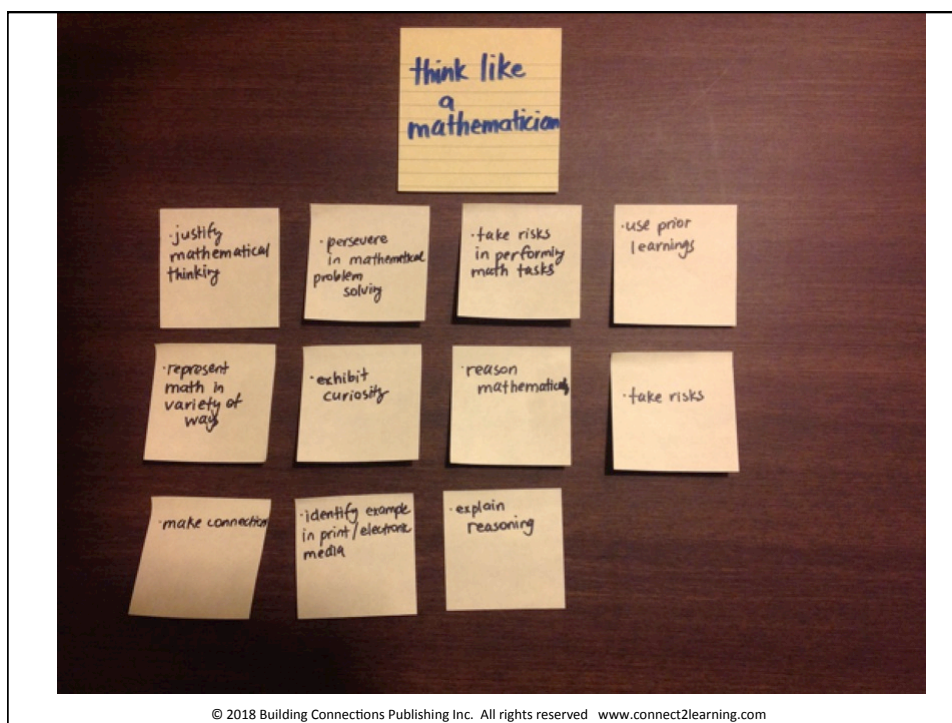 think like
a
mathematician
·justify
mathematical
thinking
·persevere
in mathematical
problem
solving
·take risks
in performing
math tasks
·use prior
learnings
·represent
math in
variety of
ways
·exhibit
curiosity
·reason
mathematically
·take risks
·make connection
·identify example
in print/electronic
media
·explain
reasoning
© 2018 Building Connections Publishing Inc. All rights reserved www.connect2learning.com